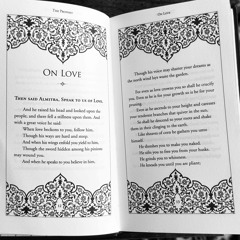 The Prophet
ON LOVE
Then said Almitra, Speak to us of Love.
And he raised his head and looked upon the
people, and there fell a stillness upon them. And
with a great voice he said:
When love beckons to you, follow him,
Though his ways are hard and steep.
And when his wings enfold you yield to him,
Though the sword hidden among his pinions
may wound you.
And when he speaks to you believe in him,
On Love
Though his voice may shatter your dreams as
the north wind lays waste the garden.
For even as love crowns you so shall he crucify
you. Even as he is for your growth so is he for your
pruning.
Even as he ascends to your height and caresses
your tenderest branches that quiver in the sun,
So shall he descend to your roots and shake
them in their clinging to the earth.
Like sheaves of corn he gathers you unto
himself.
He threshes you to make you naked.
He sifts you to free you from your husks.
He grinds you to whiteness.
He kneads you until you are pliant;